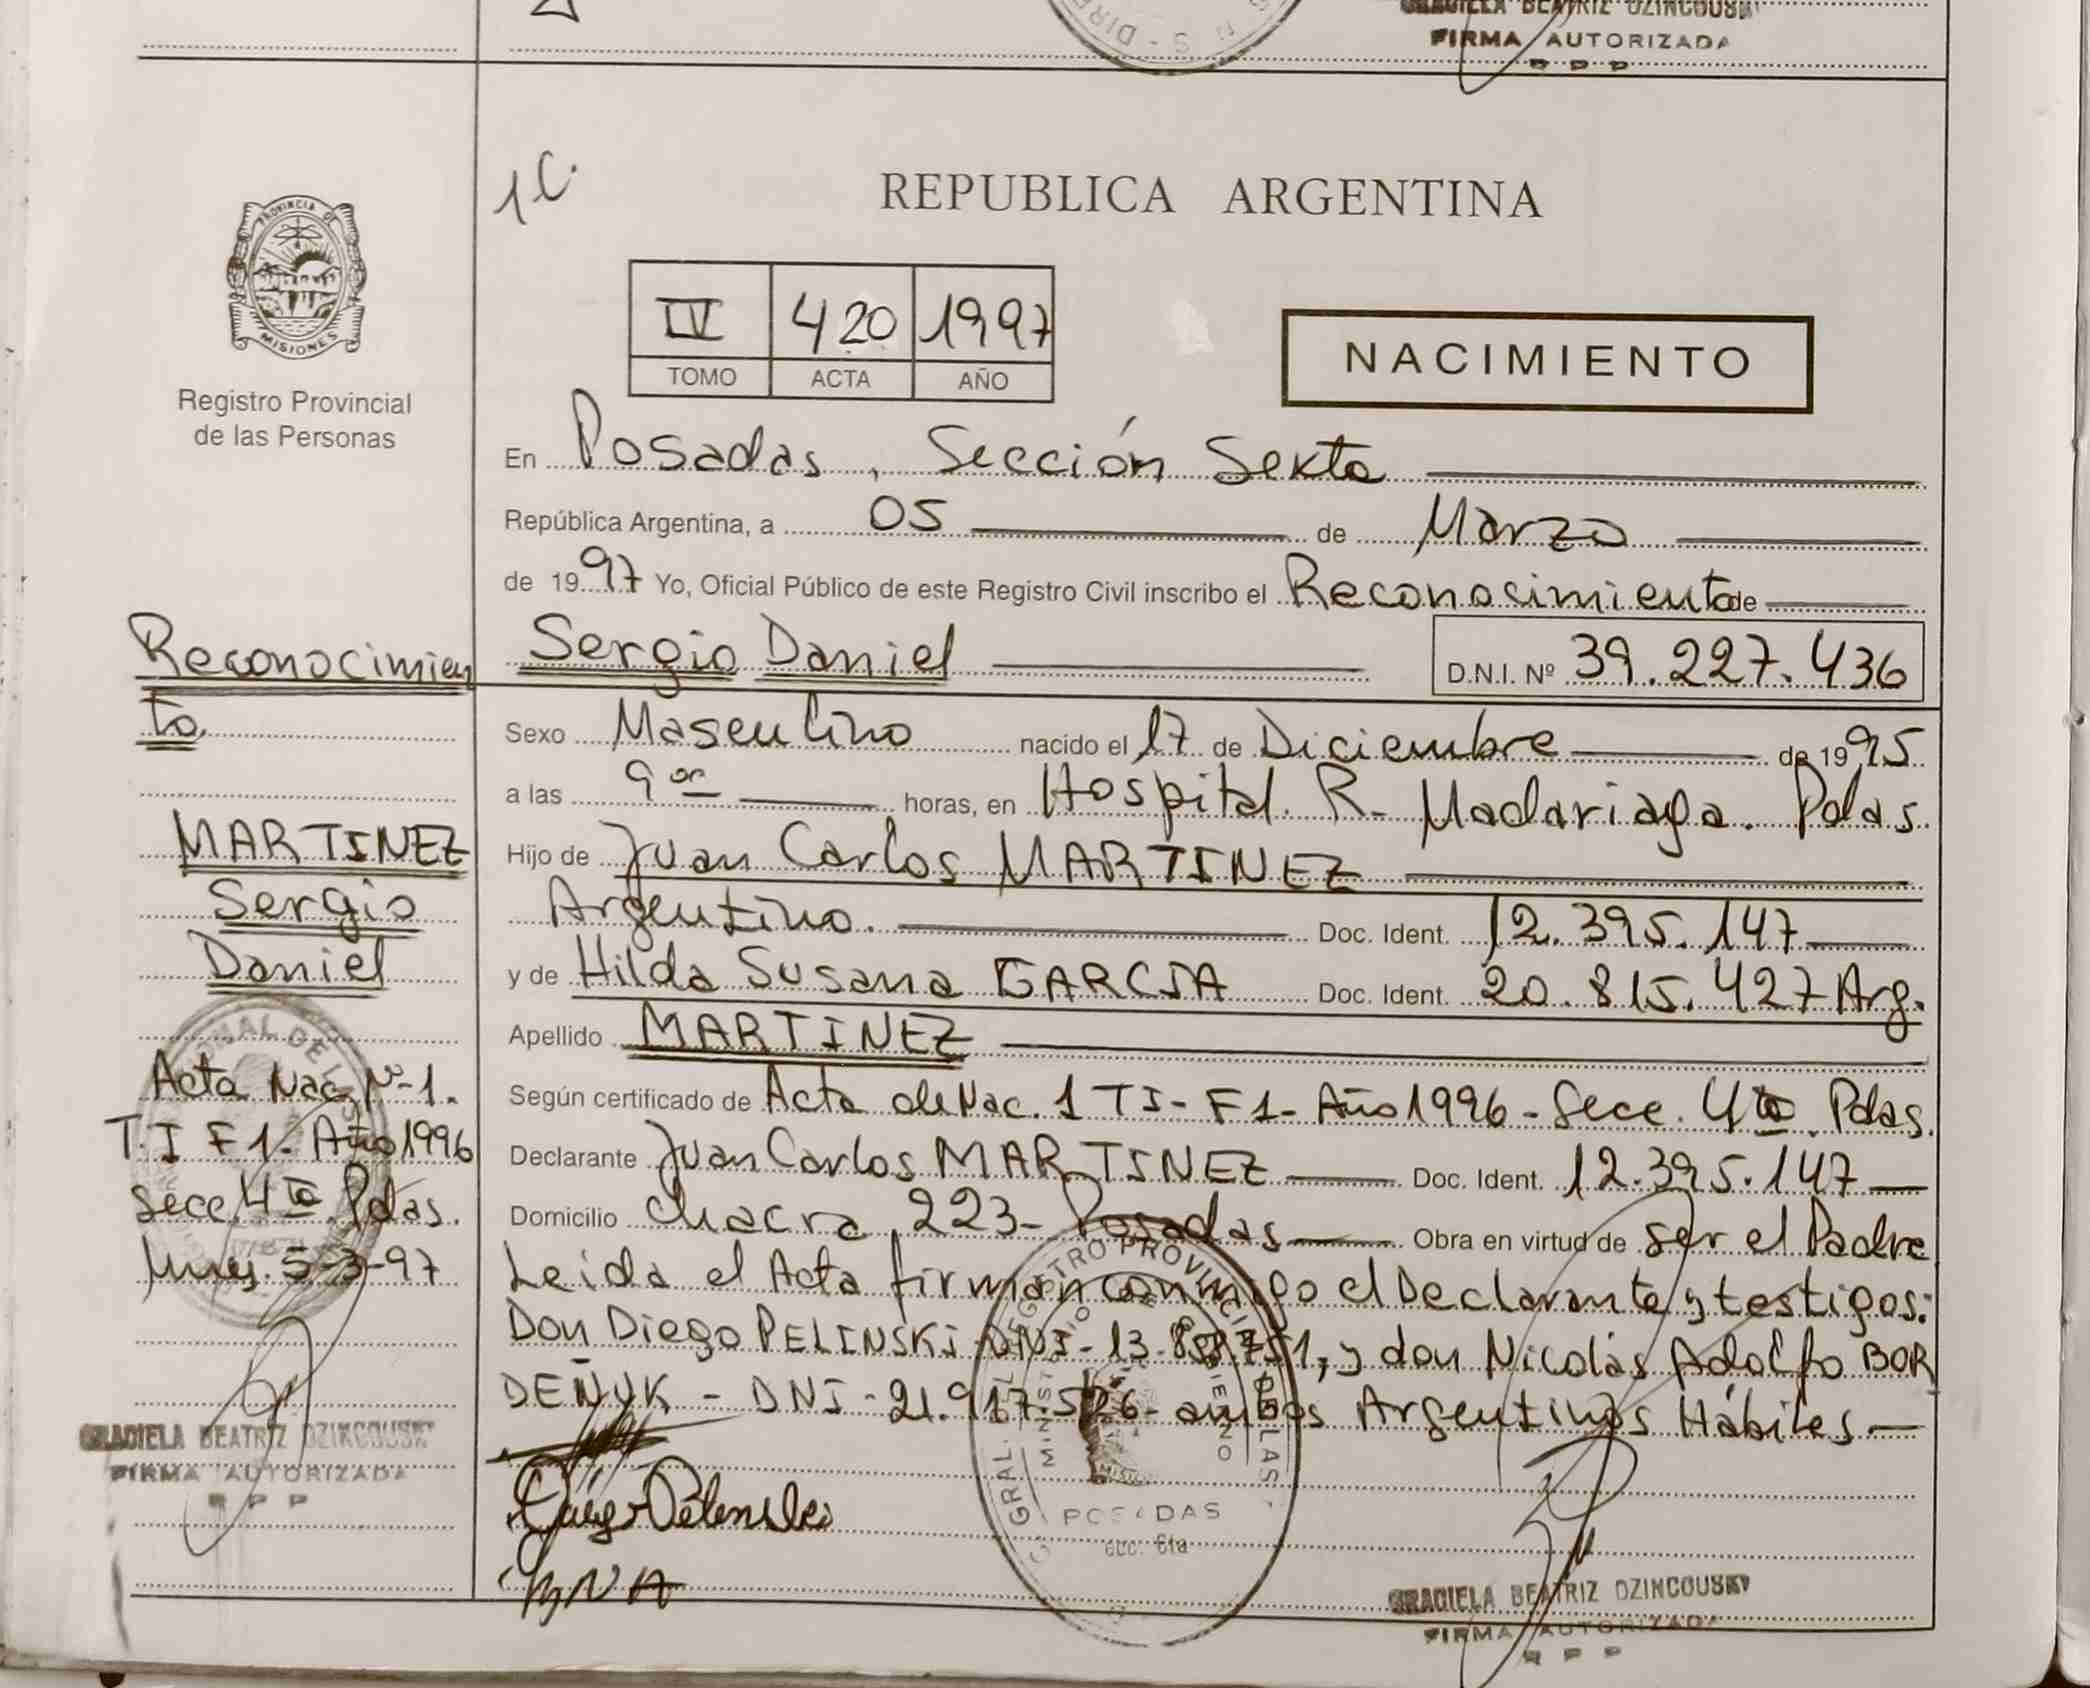 GRACIELA BEATRIZ DZINCOUSKI
FIRMA AUTORIZADA
R P P
1C.
REPUBLICA ARGENTINA
PROVINCIA DE
MISIONES
Registro Provincial
de las Personas
IV 420 1997
TOMO ACTA AÑO
NACIMIENTO
En Posadas, Sección Sexta
República Argentina, a 05 de Marzo
de 1997 Yo, Oficial Público de este Registro Civil inscribo el Reconocimiento de
Sergio Daniel D.N.I. Nº 39.227.436
Sexo Masculino nacido el 17 de Diciembre de 1995
a las 9 oo horas, en Hospital R. Madariaga. Pdas.
Hijo de Juan Carlos MARTINEZ
Argentino. Doc. Ident. 12.395.147
y de Hilda Susana GARCIA Doc. Ident. 20.815.427 Arg.
Apellido MARTINEZ
Según certificado de Acta de Nac. 1 TI - F1 - Año 1996 - Secc. 4ta. Pdas.
Declarante Juan Carlos MARTINEZ Doc. Ident. 12.395.147
Domicilio Chacra 223 - Posadas Obra en virtud de ser el Padre
Leida el Acta firman conmigo el Declarante y testigos:
Don Diego PELINSKI - DNI - 13. , y don Nicolás Adolfo BOR
DEÑYK - DNI - 21.917.526 - ambos Argentinos Hábiles
Reconocimien
to.
MARTINEZ
Sergio
Daniel
Acta Nac. Nº 1.
T.I F 1. Año 1996
Secc. 4ta. Pdas.
5-3-97
GRACIELA BEATRIZ DZINCOUSKI
FIRMA AUTORIZADA
R P P
REGISTRO PROVINCIAL DE LAS
POSADAS
Secc. 6ta
GRACIELA BEATRIZ DZINCOUSKI
FIRMA AUTORIZADA
R P P